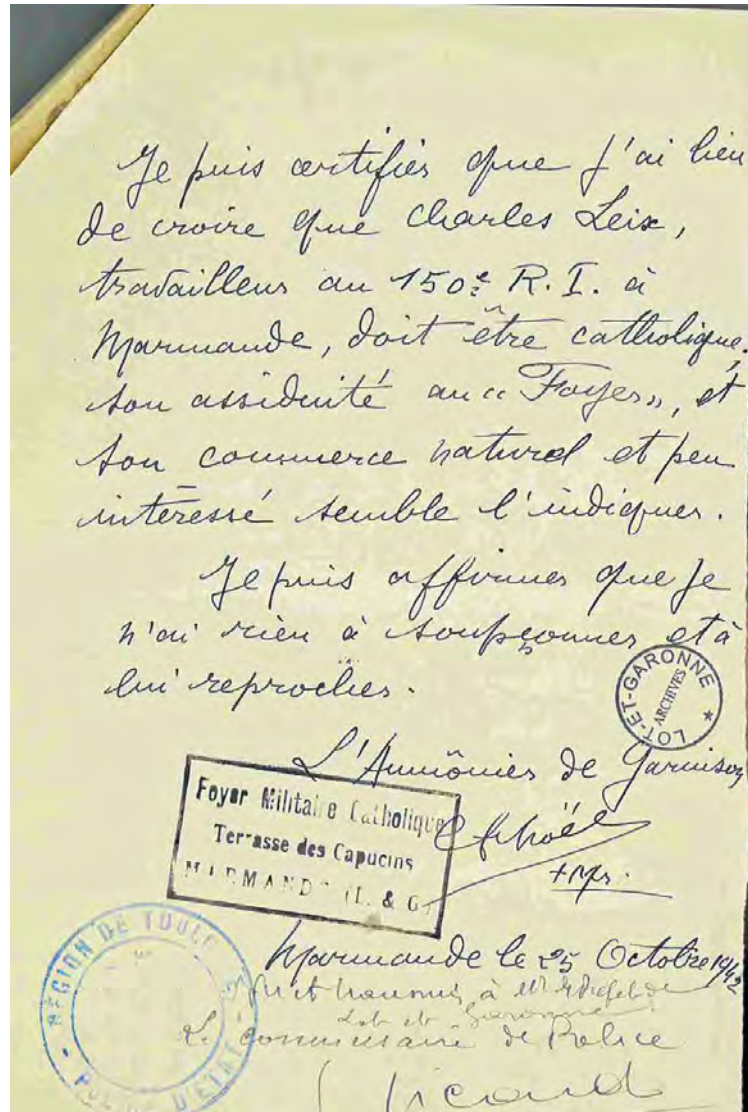 Je puis certifier que j'ai lieu
de croire que Charles Leix,
travailleur au 150e R. I. à
Marmande, doit être catholique,
son assiduité au « Foyer », et
son commerce naturel et peu
intéressé semble l'indiquer.
Je puis affirmer que je
n'ai rien à soupçonner et à
lui reprocher.
LOT-ET-GARONNE
ARCHIVES
L'Aumônier de Garnison
Foyer Militaire Catholique
Terrasse des Capucins
MARMANDE (L. & G.)
RÉGION DE TOULOUSE
POLICE D'ETAT
Marmande le 25 Octobre 1942
à Mr le Préfet de
Lot et Garonne
Le commissaire de Police